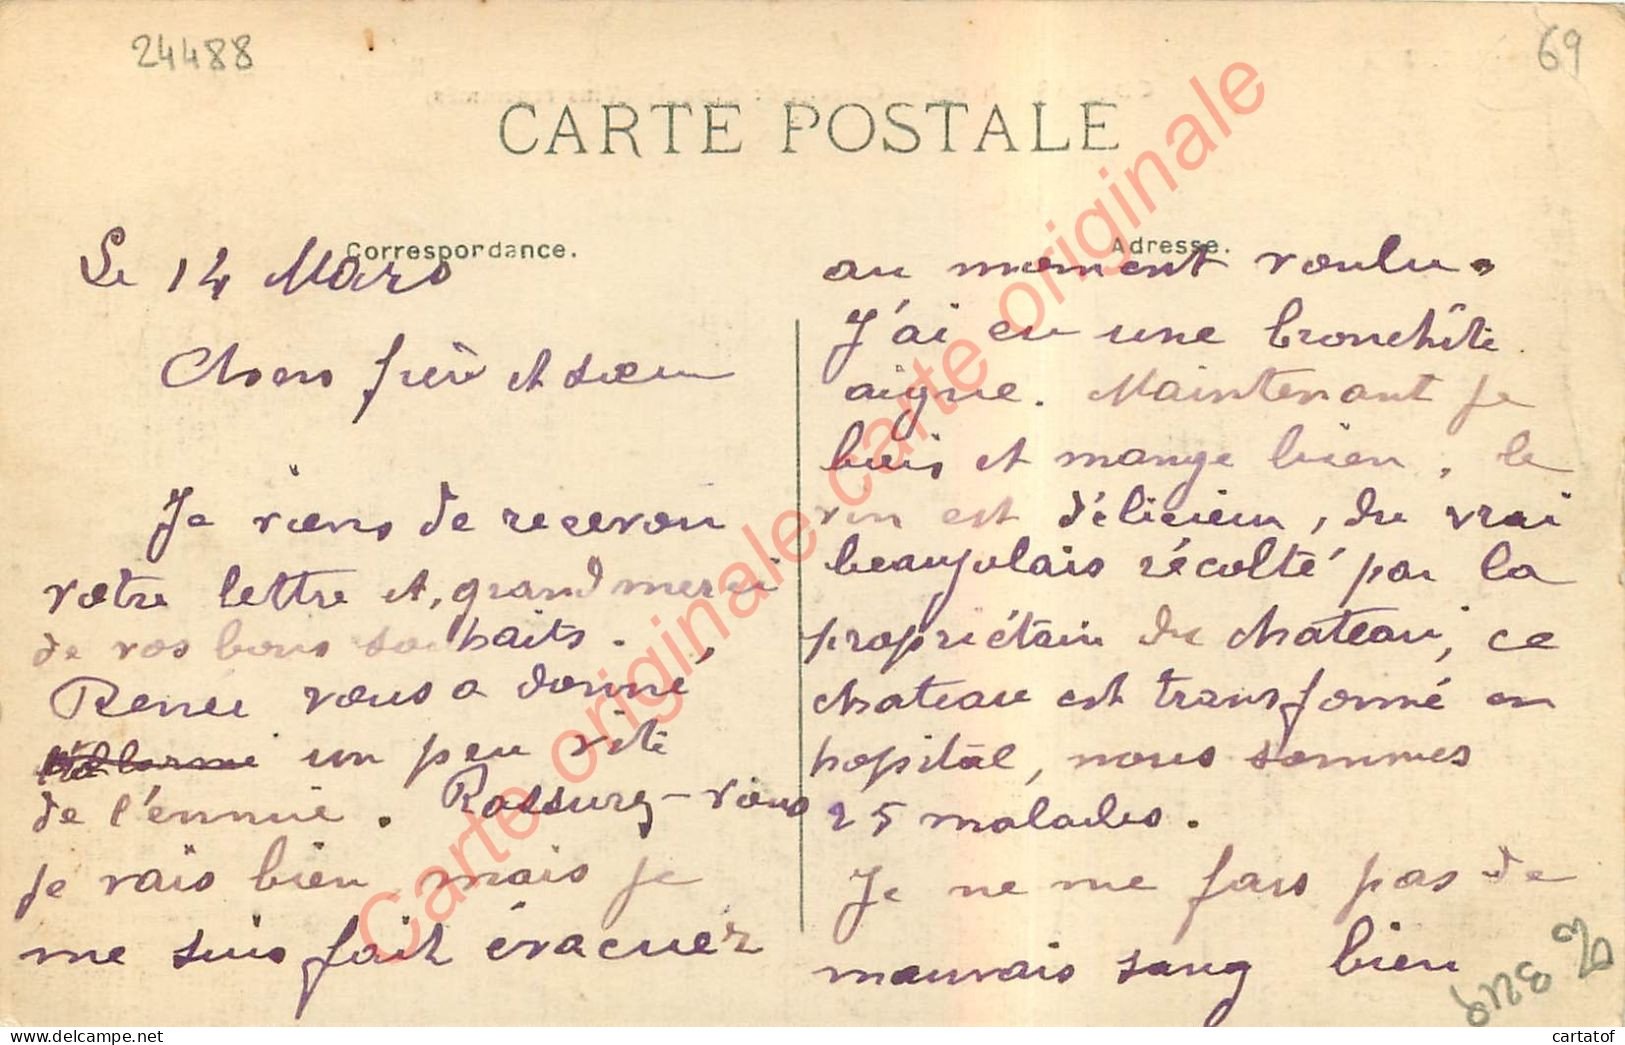 24488
69
CARTE POSTALE
Correspondance.
Adresse.
Le 14 Mars
Chers frère et sœur
Je viens de recevoir
votre lettre et, grand merci
de vos bons souhaits.
Renée vous a donné
un peu vite
de l'ennuie. Rassurez-vous
je vais bien mais je
me suis fait évacuer
au moment voulu.
J'ai eu une bronchite
aigue. Maintenant je
bois et mange bien, le
vin est délicieux, du vrai
beaujolais récolté par la
propriétaire du chateau, ce
chateau est transformé en
hopital, nous sommes
25 malades.
Je ne me fais pas de
mauvais sang bien
Carte originale Carte originale
cartatof